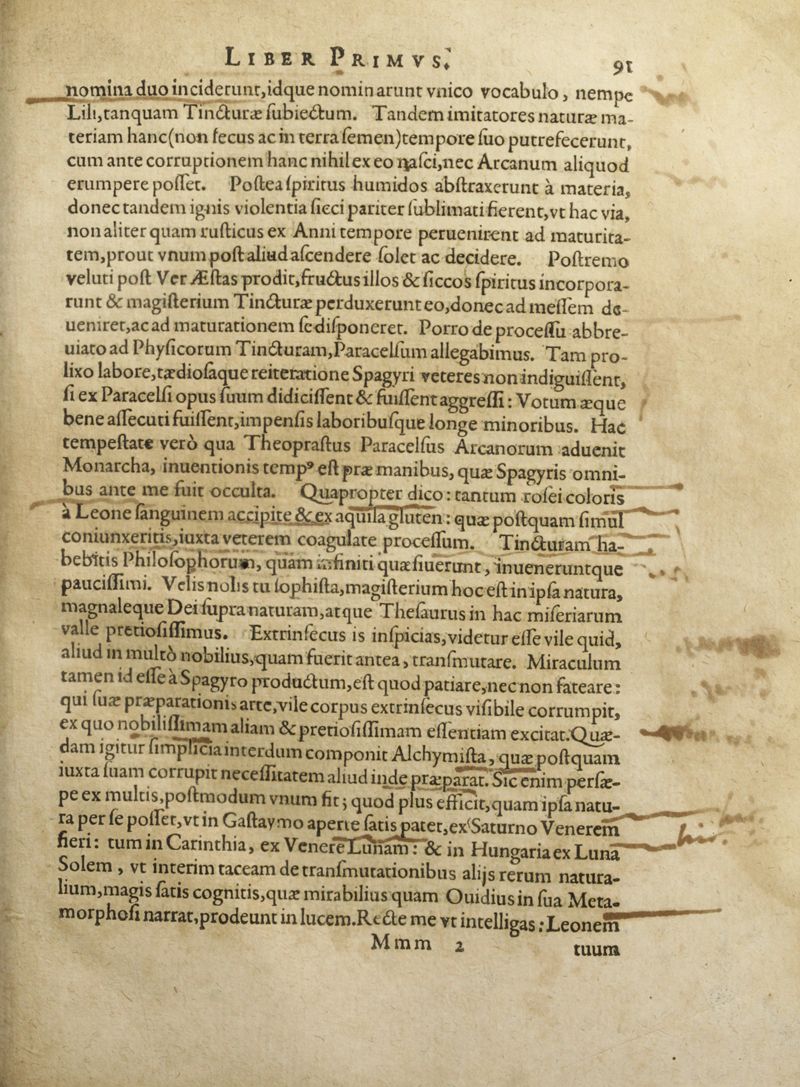 LIBER PRIMVS.
91
nomina duo inciderunt,idque nominarunt vnico vocabulo, nempe
Lili,tanquam Tincturæ ſubiectum. Tandem imitatores naturæ ma-
teriam hanc(non ſecus ac in terra ſemen)tempore ſuo putrefecerunt,
cum ante corruptionem hanc nihil ex eo naſci,nec Arcanum aliquod
erumpere poſſet. Poſtea ſpiritus humidos abſtraxerunt à materia,
donec tandem ignis violentia ſicci pariter ſublimati fierent,vt hac via,
non aliter quam ruſticus ex Anni tempore peruenirent ad maturita-
tem,prout vnum poſt aliud aſcendere ſolet ac decidere. Poſtremo
veluti poſt Ver Æſtas prodit,fructus illos & ſiccos ſpiritus incorpora-
runt & magiſterium Tincturæ perduxerunt eo,donec ad meſſem de-
ueniret,ac ad maturationem ſe diſponeret. Porro de proceſſu abbre-
uiato ad Phyſicorum Tincturam,Paracelſum allegabimus. Tam pro-
lixo labore,tædioſaque reiteratione Spagyri veteres non indiguiſſent,
ſi ex Paracelſi opus ſuum didiciſſent & fuiſſent aggreſſi: Votum æque
bene aſſecuti fuiſſent,impenſis laboribuſque longe minoribus. Hac
tempeſtate verò qua Theopraſtus Paracelſus Arcanorum aduenit
Monarcha, inuentionis tempꝰ eſt præ manibus, quæ Spagyris omni-
bus ante me fuit occulta. Quapropter dico: tantum roſei coloris
à Leone ſanguinem accipite & ex aquila gluten: quæ poſtquam ſimul
coniunxeritis,iuxta veterem coagulate proceſſum. Tincturam ha-
bebitis Philoſophorum, quam infiniti quæſiuerunt, inueneruntque
pauciſſimi. Velis nolis tu ſophiſta,magiſterium hoc eſt in ipſa natura,
magnaleque Dei ſupra naturam,atque Theſaurus in hac miſeriarum
valle pretioſiſſimus. Extrinſecus is inſpicias,videtur eſſe vile quid,
aliud in multò nobilius,quam fuerit antea, tranſmutare. Miraculum
tamen id eſſe à Spagyro productum,eſt quod patiare,nec non fateare:
qui ſuæ præparationis arte,vile corpus extrinſecus viſibile corrumpit,
ex quo nobiliſſimam aliam & pretioſiſſimam eſſentiam excitat.Quæ-
dam igitur ſimplicia interdum componit Alchymiſta, quæ poſtquam
iuxta ſuam corrupit neceſſitatem aliud inde præparat. Sic enim perſæ-
pe ex multis,poſtmodum vnum fit; quod plus efficit,quam ipſa natu-
ra per ſe poſſet,vt in Gaſtaymo aperte ſatis patet,ex Saturno Venerem
fieri: tum in Carinthia, ex Venere Lunam: & in Hungaria ex Luna
Solem , vt interim taceam de tranſmutationibus alijs rerum natura-
lium,magis ſatis cognitis,quæ mirabilius quam Ouidius in ſua Meta-
morphoſi narrat,prodeunt in lucem.Recte me vt intelligas : Leonem
Mmm 2 tuum